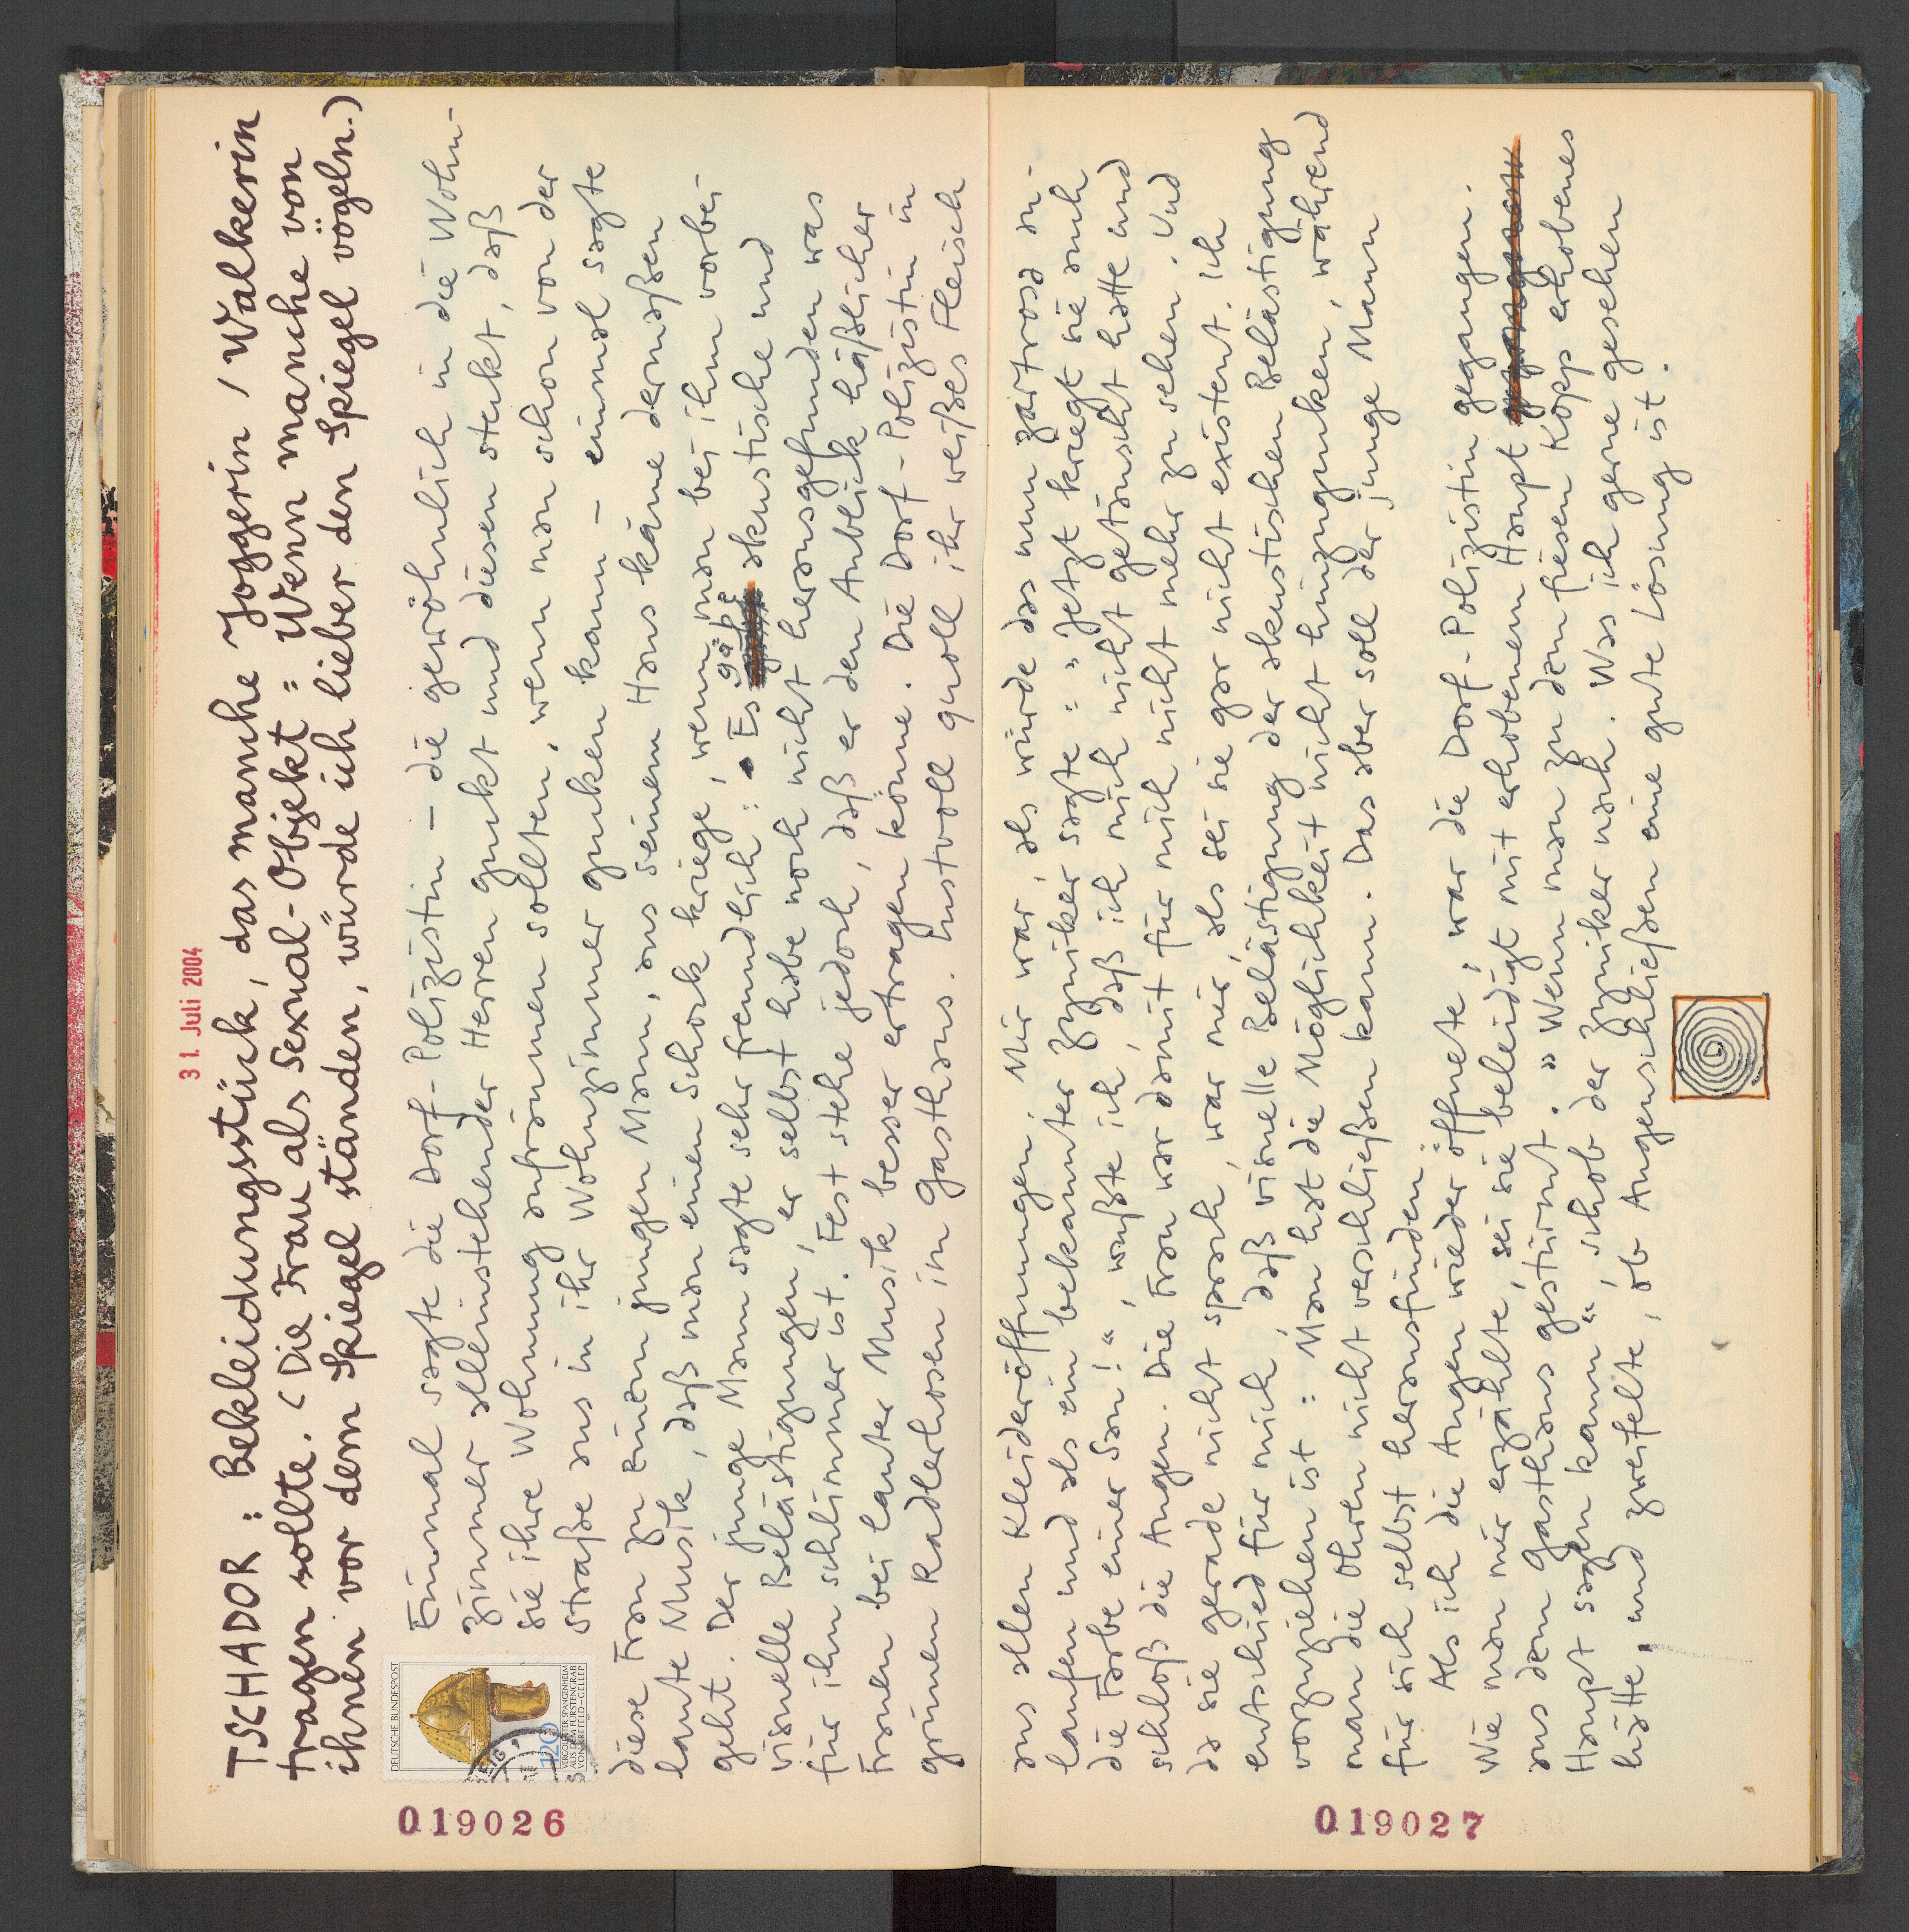 31. Juli 2004
TSCHADOR: Bekleidungsstück, das manche Joggerin / Walkerin
tragen sollte. (Die Frau als Sexual-Objekt: Wenn manche von
ihnen vor dem Spiegel ständen, würde ich lieber den Spiegel vögeln.)
DEUTSCHE BUNDESPOST
120
VERGOLDETER SPANGENHELM
AUS DEM FÜRSTENGRAB
VON KREFELD-GELLEP
Einmal sagte die Dorf-Polizistin – die gewöhnlich in die Wohn-
zimmer alleinstehender Herren guckt und diesen steckt, daß
sie ihre Wohnung aufräumen sollten, wenn man schon von der
Straße aus in ihr Wohnzimmer gucken kann – einmal sagte
diese Frau zu einem jungen Mann, aus seinem Haus käme dermaßen
laute Musik, daß man einen Schock kriege, wenn man bei ihm vorbei-
geht. Der junge Mann sagte sehr freundlich: Es gäbe akustische und
visuelle Belästigungen, er selbst habe noch nicht herausgefunden was
für ihn schlimmer ist. Fest stehe jedoch, daß er den Anblick häßlicher
Frauen bei lauter Musik besser ertragen könne. Die Dorf-Polizistin in
grünen Radlerhosen im Gasthaus. Lustvoll quoll ihr weißes Fleisch
019026
aus allen Kleideröffnungen. Mir war, als würde das nun zartrosa an-
laufen und als ein bekannter Zyniker sagte: "Jetzt kriegt sie auch
die Farbe einer Sau!", wußte ich, daß ich mich nicht getäuscht hatte und
schloß die Augen. Die Frau war damit für mich nicht mehr zu sehen. Und
da sie gerade nicht sprach, war mir, als sei sie gar nicht existent. Ich
entschied für mich, daß visuelle Belästigung der akustischen Belästigung
vorzuziehen ist: Man hat die Möglichkeit nicht hinzugucken, während
man die Ohren nicht verschließen kann. Das aber soll der junge Mann
für sich selbst herausfinden.
Als ich die Augen wieder öffnete, war die Dorf-Polizistin gegangen.
Wie man mir erzählte, sei sie beleidigt mit erhobenem Haupt
aus dem Gasthaus gestürmt. "Wenn man zu dem fiesen Kopp erhobenes
Haupt sagen kann", schob der Zyniker nach. Was ich gerne gesehen
hätte, und zweifelte, ob Augenschließen eine gute Lösung ist.
019027